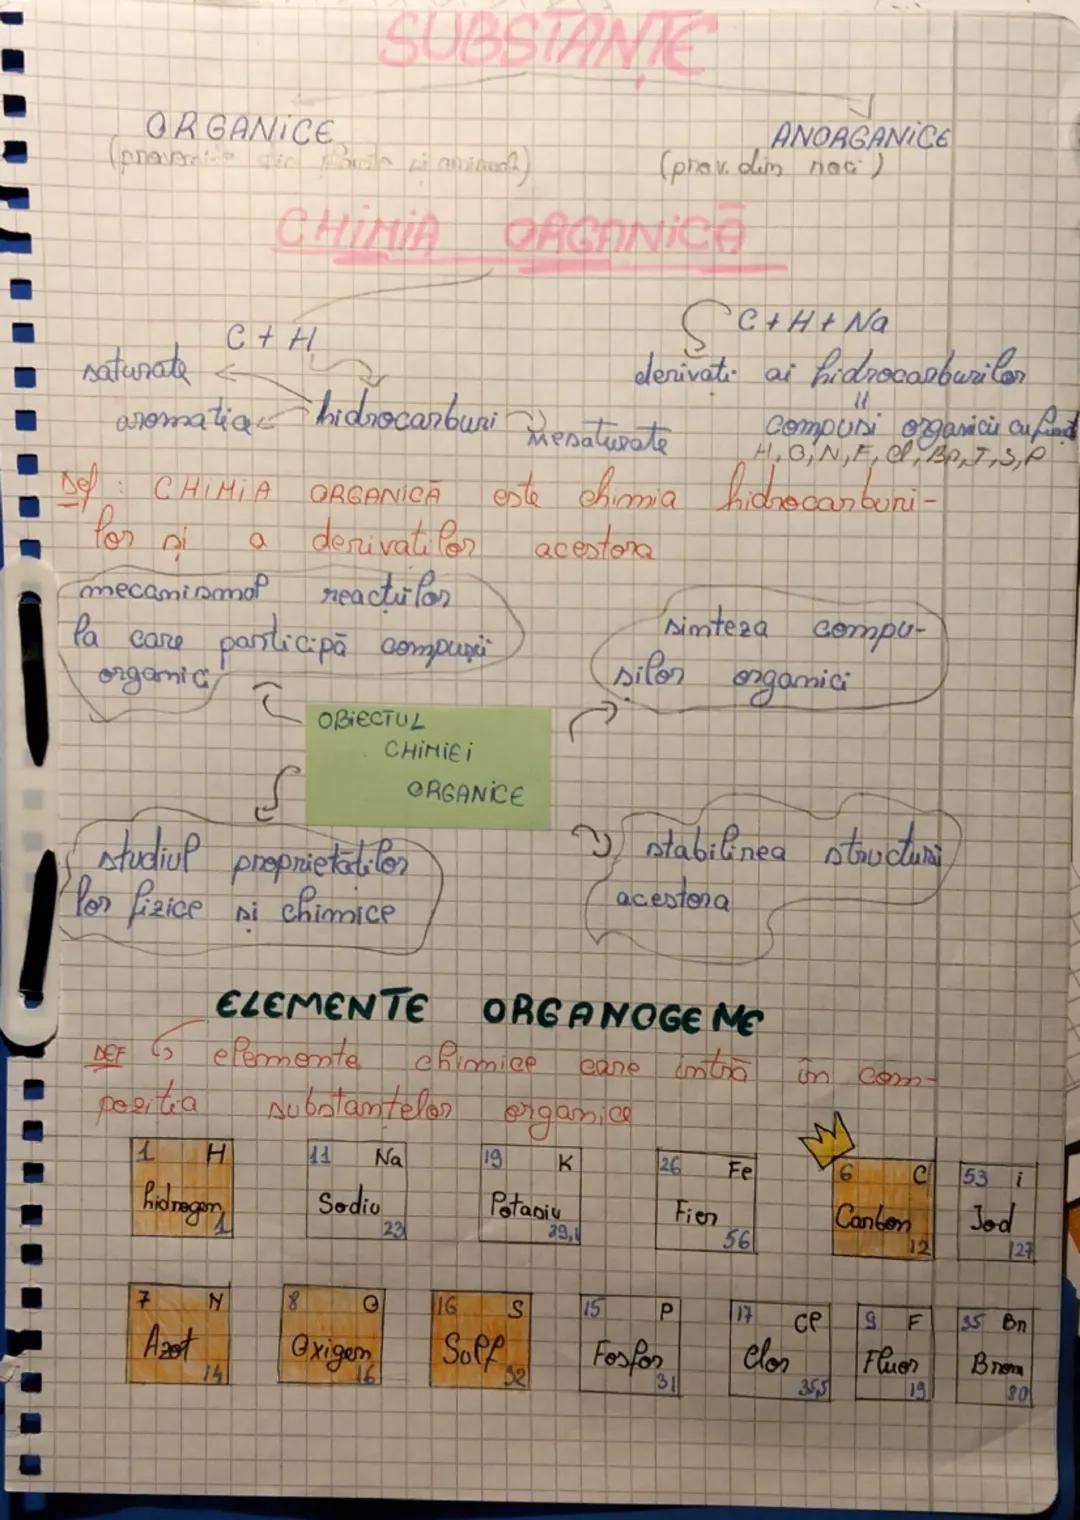 SUBSTANȚE
ORGANICE ANORGANICE
(prov. din roci)
CHIMIA ORGANICĂ
C + H C + H + Na
saturate derivați ai hidrocarburilor
aromatice hidrocarburi nesaturate
compuși organici cu
H, O, N, F, Cl, Br, I, S, P
Def: CHIMIA ORGANICĂ este chimia hidrocarburi-
lor și a derivatilor acestora
mecanismol reacțiilor
la care participă compușii
organici
sinteza compu-
șilor organici
OBIECTUL
CHIMIEI
ORGANICE
studiul proprietăților
lor fizice și chimice
stabilirea structurii
acestora
ELEMENTE ORGANOGENE
DEF elemente chimice care intră în com-
poziția substanțelor organice
1 H
hidrogen
1
11 Na
Sodiu
23
19 K
Potasiu
39,1
26 Fe
Fier
56
6 C
Carbon
12
53 i
Iod
127
7 N
Azot
14
8 O
Oxigen
16
16 S
Sulf
32
15 P
Fosfor
31
17 Cl
Clor
35,5
9 F
Fluor
19
35 Br
Brom
80